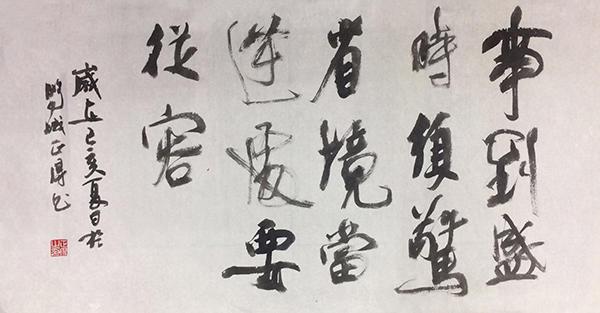 事到盛
時須警
省境當
逆處要
從容
歲在己亥夏日於
鵬城正得書